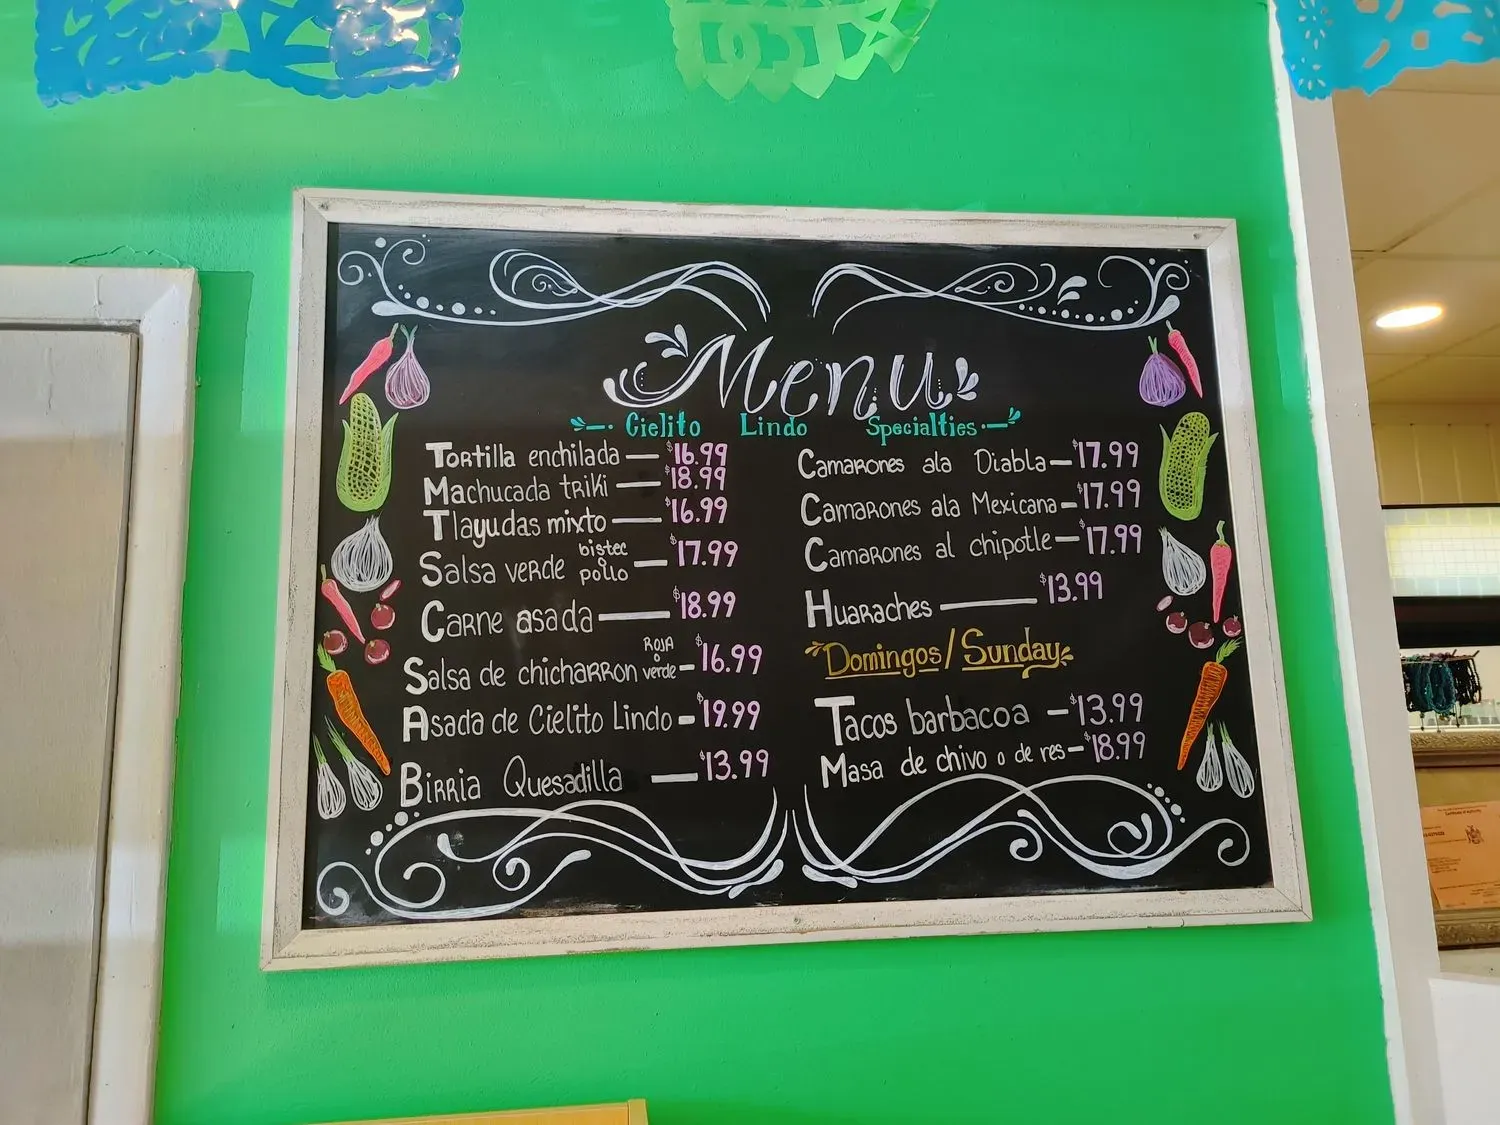 Menu
Cielito Lindo Specialties
Tortilla enchilada — $16.99
Machucada triki — $18.99
Tlayudas mixto — $16.99
Salsa verde bistec o pollo — $17.99
Carne asada — $18.99
Salsa de chicharron roja o verde - $16.99
Asada de Cielito Lindo - $19.99
Birria Quesadilla — $13.99
Camarones ala Diabla - $17.99
Camarones ala Mexicana - $17.99
Camarones al chipotle - $17.99
Huaraches — $13.99
Domingos/Sunday
Tacos barbacoa - $13.99
Masa de chivo o de res - $18.99
Certificate of Authority